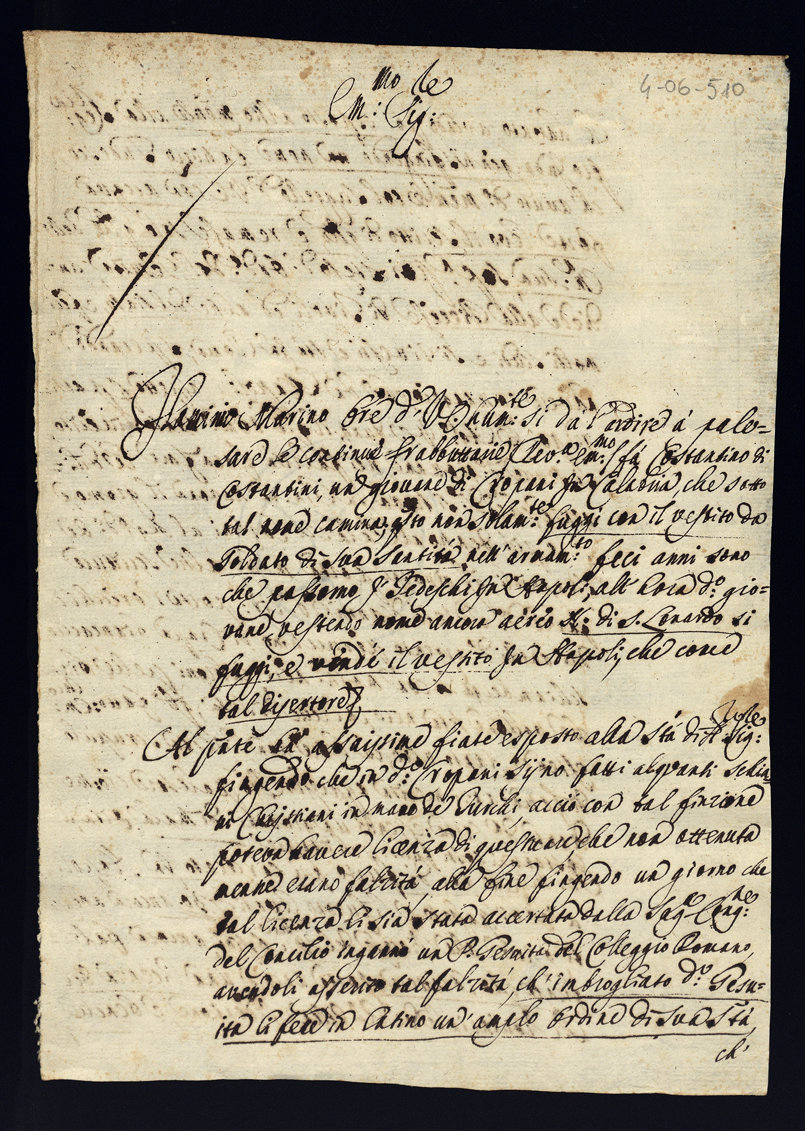 4-06-510
Em:mo Sig:re
Flaminio Marino Ore d. V. Unam:te si dà l'ardire à pale=
sare le continue frabbuttarie Rev:mo Em:mo, fà Costantino di
Costantini, un giovane di Cropani in Calabria, che sotto
tal nome camina, q.sto non solam:te fuggì con il vestito da
Soldato di Sua Santità nell'armam:to feci anni sono
che passorno J Tedeschi in Napoli, all'hora d:o gio=
vane, vestendo nome ancora aereo N: di S. Lonardo si
fuggì, e vendè il vestito in Napoli, che come
tal disertore
Al p:nte hà assaissime fiate esposto alla S:tà di N. Sig:re
fingendo che in d:o Cropani sijno fatti alquanti schia=
ui Christiani in mano de Turchi, acciò con tal finzione
poteva hauere licenza di questuare che non ottenuta
nenne erano falzità, alla fine fingendo un giorno che
tal licenza li sia stata accertata dalla Sag:a Cong:ne
del Concilio ingannò un P. Gesuita del Colleggio Romano,
auendoli asserito tal falzità, ch'imbrogliato d:o Gesu=
ita li fece in latino un'amplo ordine di Sua S:tà
ch'